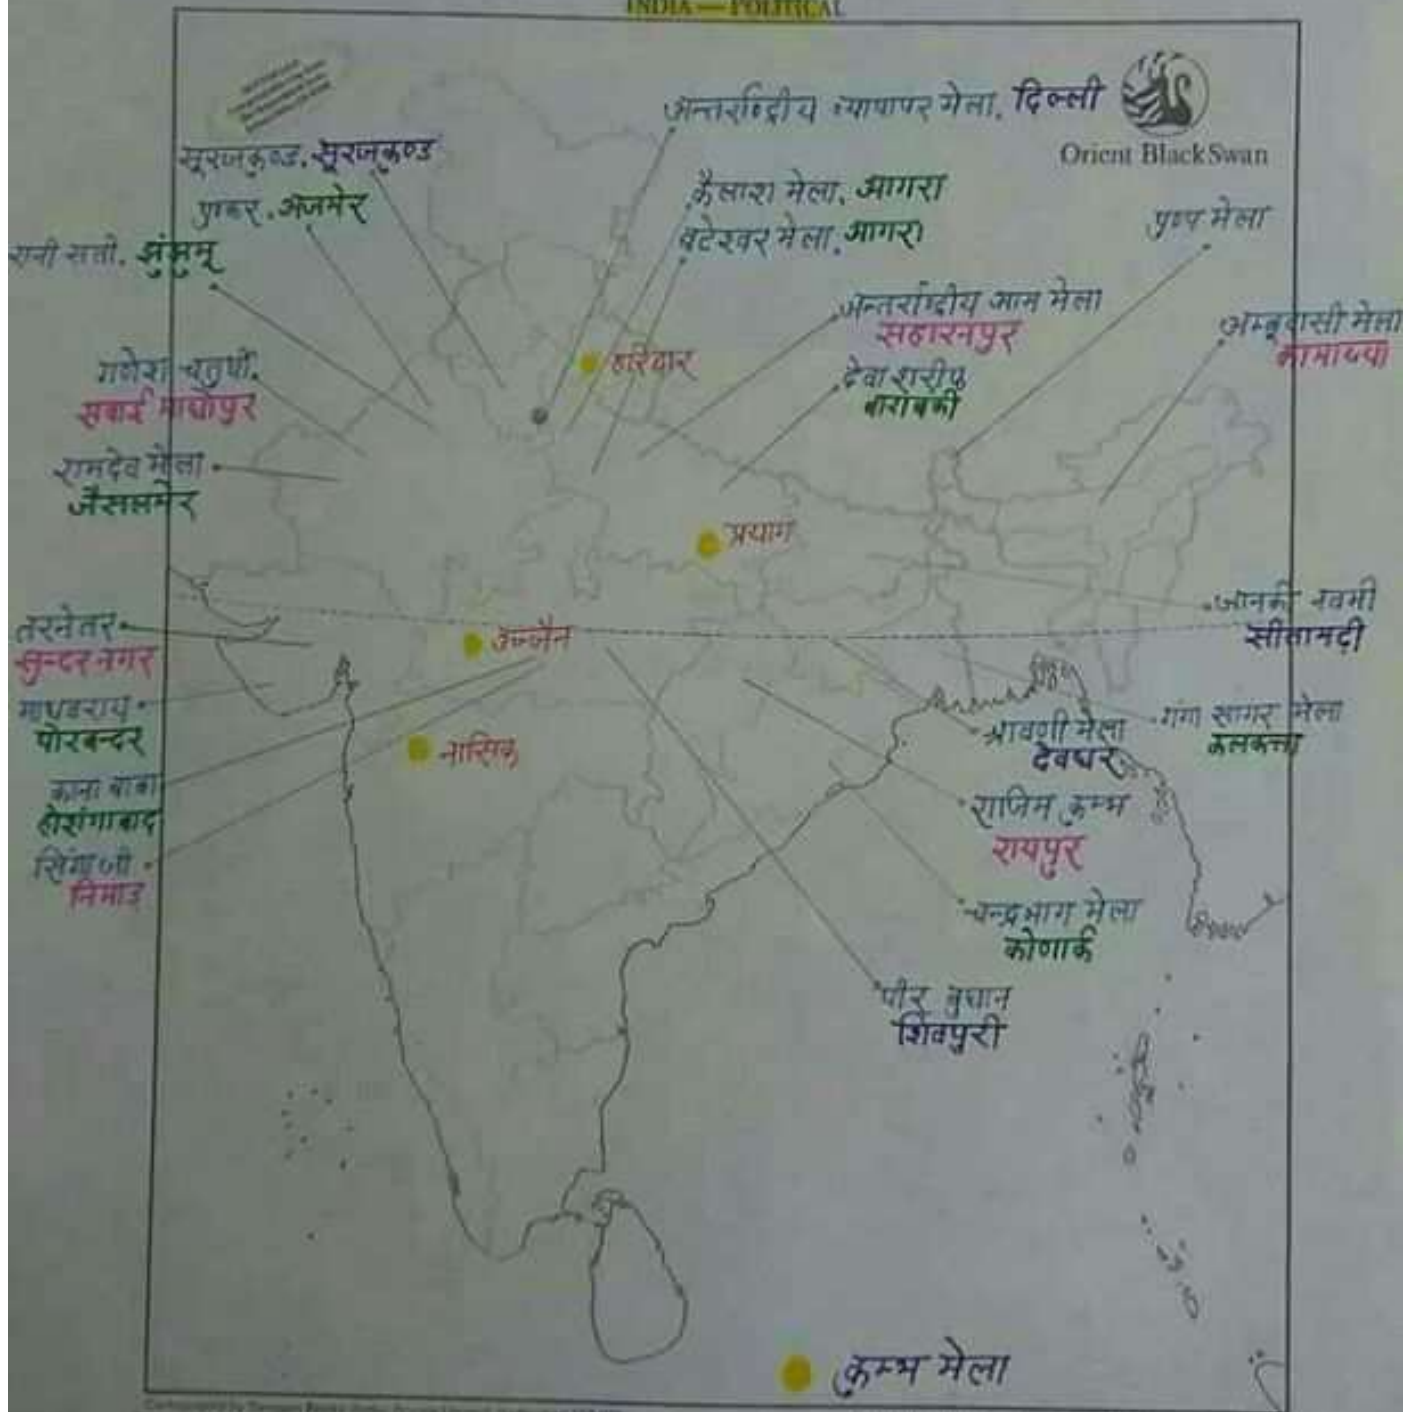 INDIA — POLITICAL
Orient BlackSwan
अन्तर्राष्ट्रीय व्यापार मेला, दिल्ली
सूरजकुण्ड, सूरजकुण्ड
कैलाश मेला, आगरा
पुष्कर, अजमेर
बटेश्वर मेला, आगरा
पुष्प मेला
रानी सती, झुंझुमू
अन्तर्राष्ट्रीय आम मेला
सहारनपुर
अम्बूवासी मेला
कामाख्या
हरिद्वार
गणेश चतुर्थी,
सवाई माधोपुर
देवा शरीफ
बाराबंकी
रामदेव मेला
जैसलमेर
प्रयाग
जानकी नवमी
सीतामढ़ी
तरनेतर
सुन्दरनगर
उज्जैन
माधवराय
पोरबन्दर
श्रावणी मेला
देवघर
गंगा सागर मेला
कलकत्ता
नासिक
काना बाबा
होशंगाबाद
राजिम कुम्भ
रायपुर
सिंगाजी
निमाड़
चन्द्रभाग मेला
कोणार्क
पीर बुधान
शिवपुरी
कुम्भ मेला